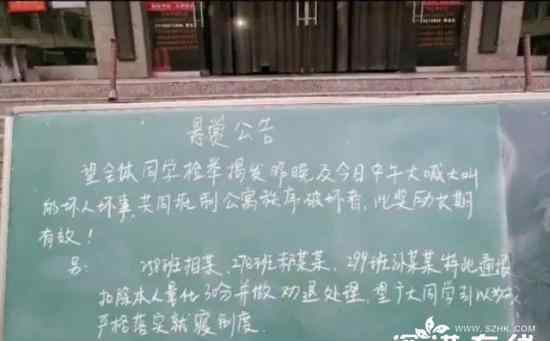 悬赏公告
望全体同学检举揭发昨晚及今日中午大喊大叫
的坏人坏事，共同抵制公寓秩序破坏者，此奖励长期
有效！
另： 258班相某，278班郭某某，299班孙某某特此通报
扣除本人量化30分并做劝退处理，望广大同学引以为戒
严格落实就寝制度.
WWW.SZHK.COM